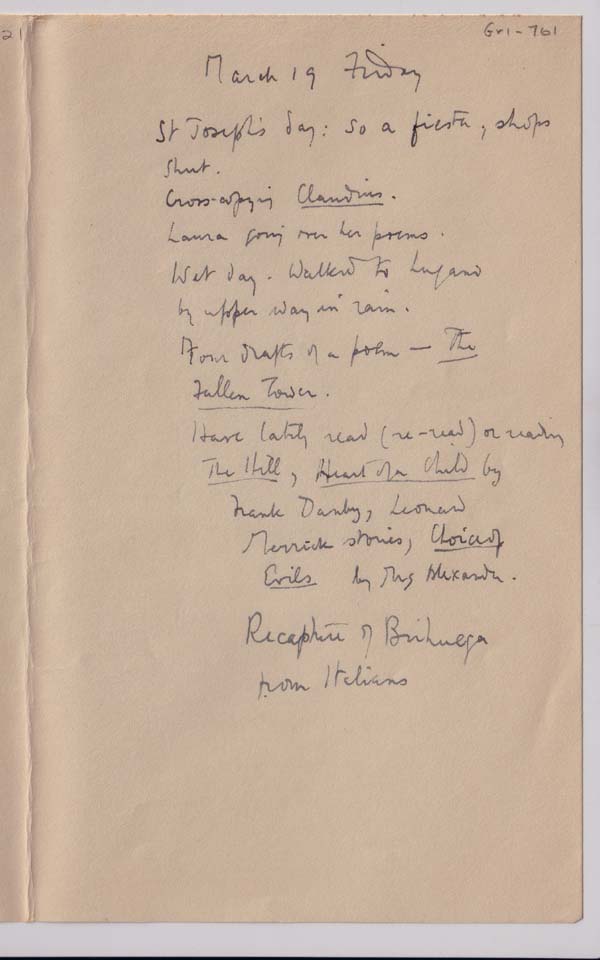 21
Gr1-761
March 19 Friday
St Joseph's day: so a fiesta, shops
shut.
Cross-copying Claudius.
Laura going over her poems.
Wet day. Walked to Lugano
by upper way in rain.
Four drafts of a poem — The
Fallen Tower.
Have lately read (re-read) or reading
The Hill, Heart of a Child by
Frank Danby, Leonard
Merrick stories, Choice of
Evils by Mrs Alexander.
Recapture of Brihuega
from Italians